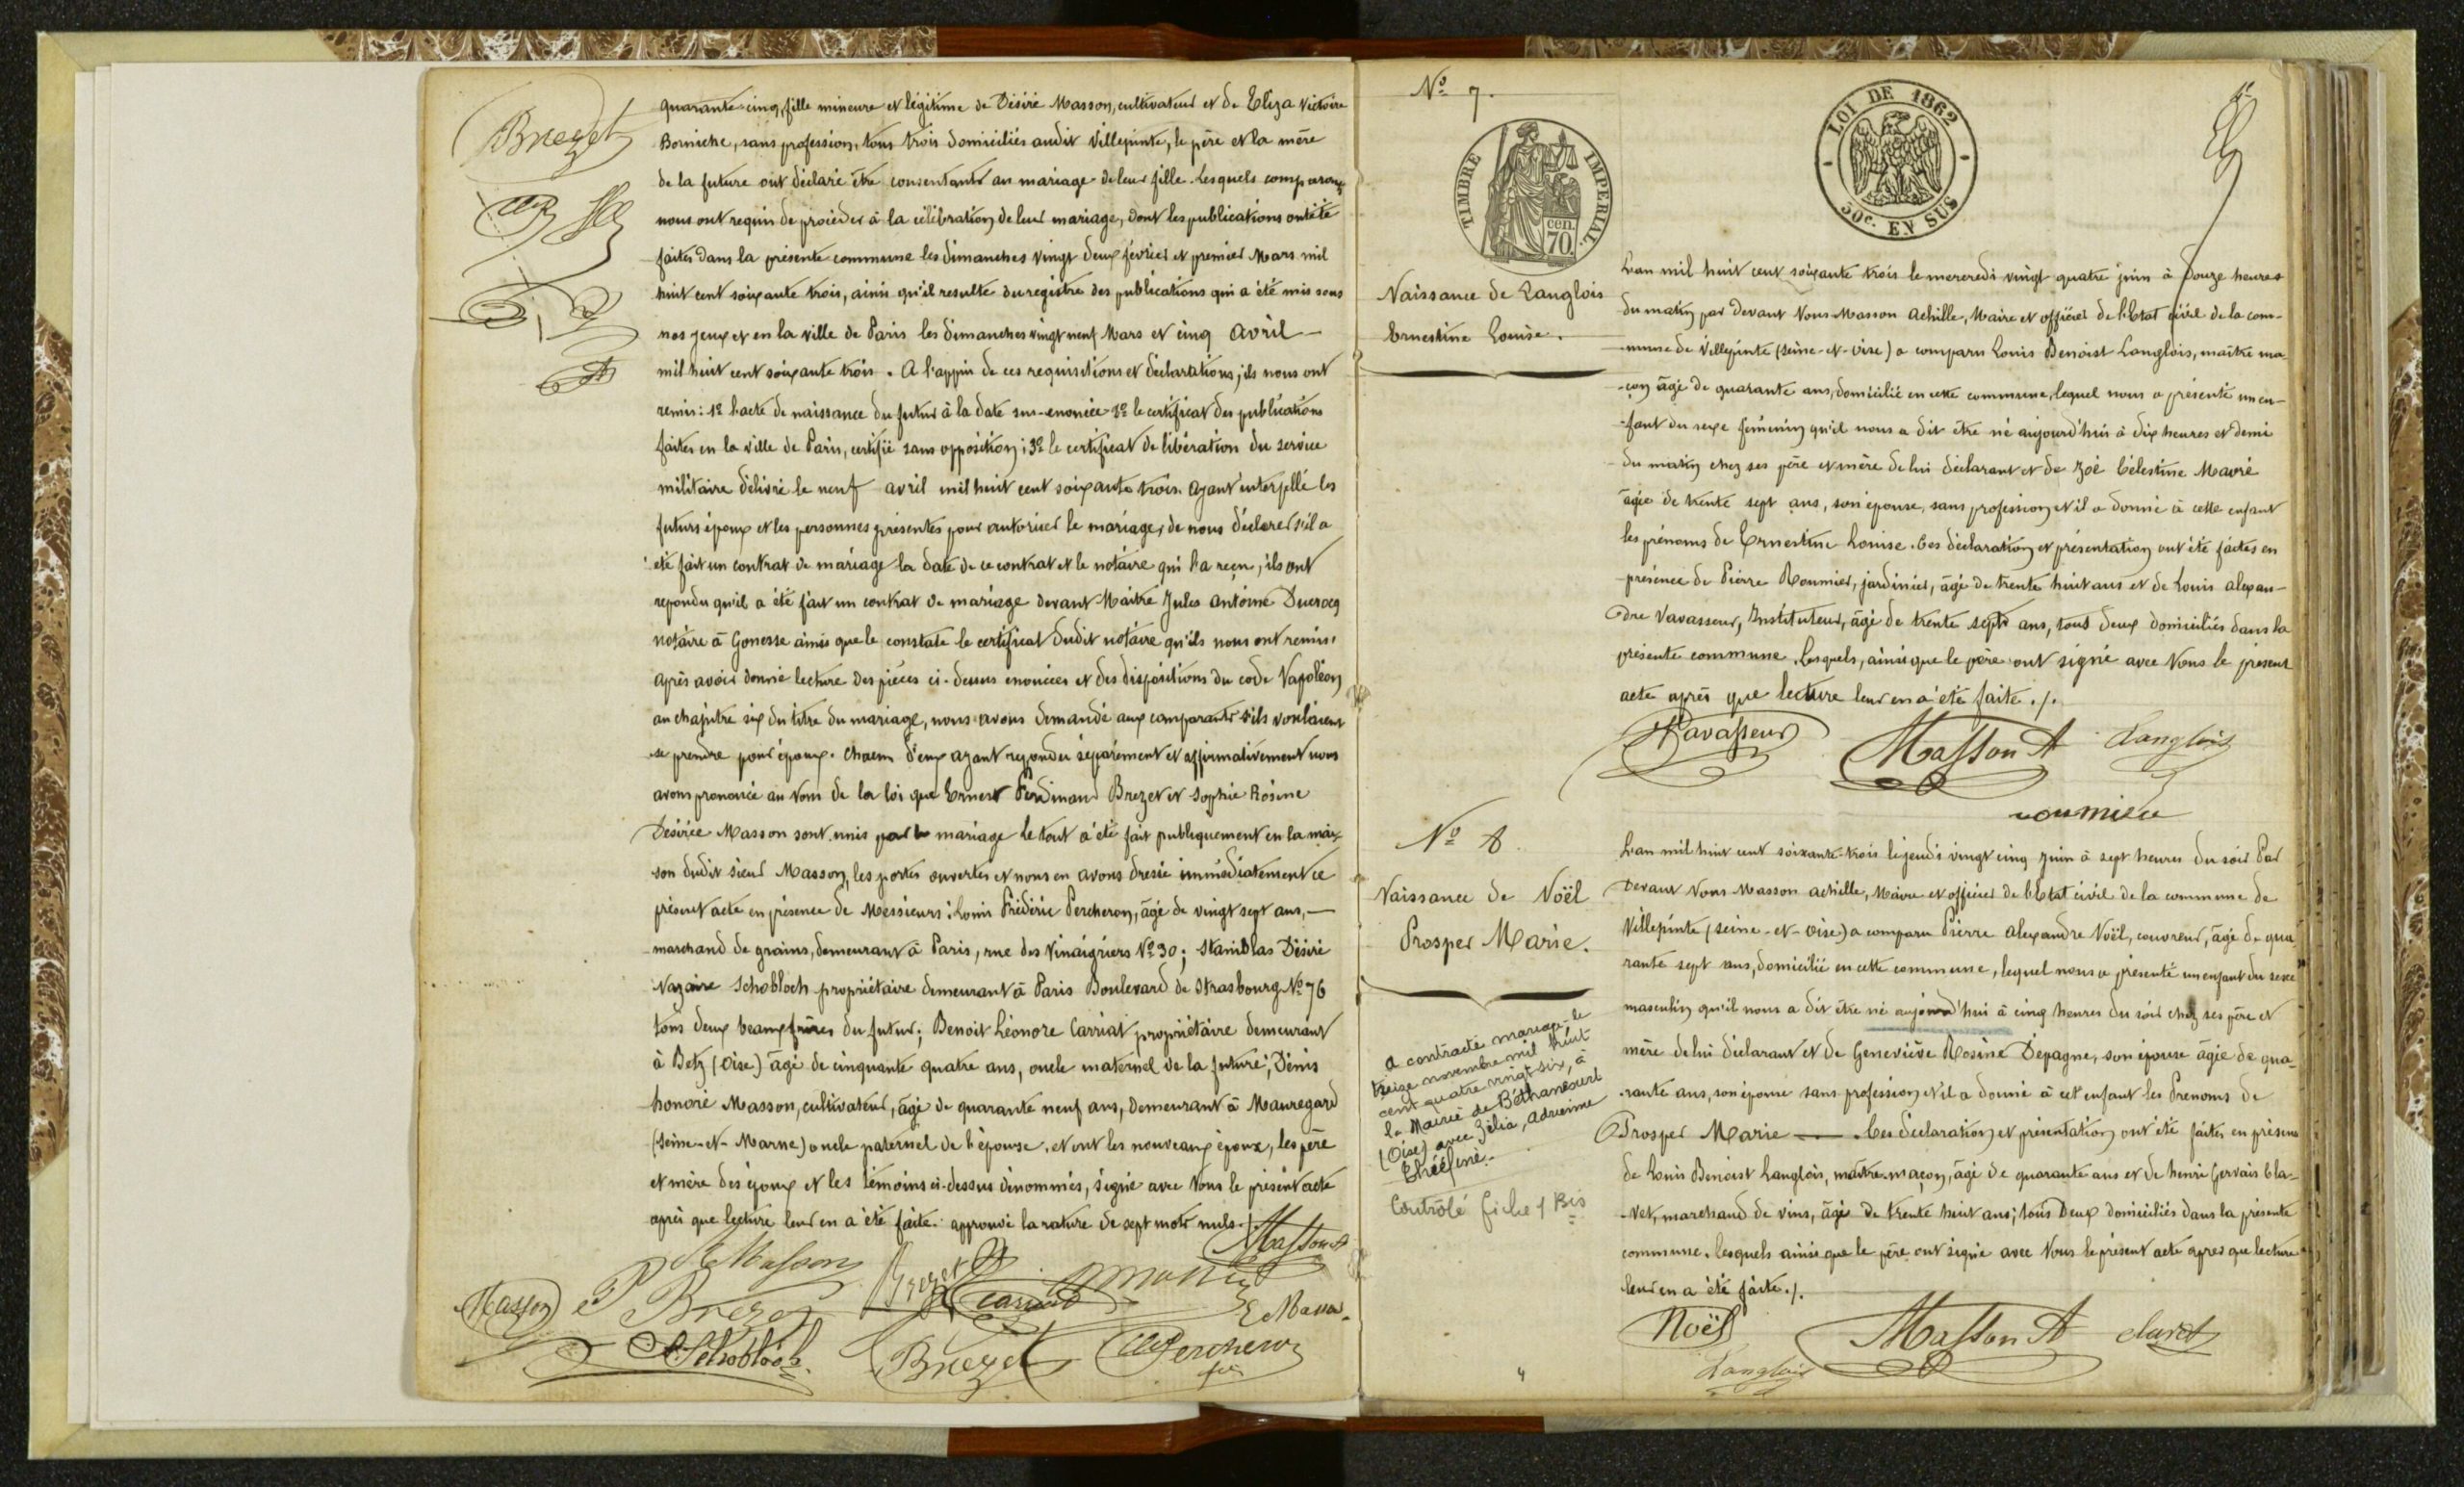 Brezet
quarante-cinq, fille mineure et légitime de Désiré Masson, cultivateur et de Eliza Victoire
Borniche, sans profession, tous trois domiciliés audit Villepinte, le père et la mère
de la future ont déclaré être consentants au mariage de leur fille. Lesquels comparants
nous ont requis de procéder à la célébration de leur mariage, dont les publications ont été
faites dans la présente commune les dimanches vingt deux février et premier Mars mil
huit cent soixante trois, ainsi qu'il resulte du registre des publications qui a été mis sous
nos yeux et en la ville de Paris les dimanches vingt neuf Mars et cinq avril —
mil huit cent soixante trois. A l'appui de ces requisitions et déclarations, ils nous ont
remis: 1º l'acte de naissance du futur à la date sus-enoncée 2º le certificat des publications
faites en la ville de Paris, certifié sans opposition; 3º le certificat de libération du service
militaire délivré le neuf avril mil huit cent soixante trois. Ayant interpellé les
futurs époux et les personnes présentes pour autoriser le mariage, de nous déclarer s'il a
été fait un contrat de mariage la date de ce contrat et le notaire qui l'a reçu, ils ont
repondu qu'il a été fait un contrat de mariage devant Maître Jules Antoine Ducrocq
notaire à Gonesse ainsi que le constate le certificat dudit notaire qu'ils nous ont remis.
Après avoir donné lecture des pièces ci-dessus enoncées et des dispositions du code Napoléon
au chapitre six du titre du mariage, nous avons demandé aux comparants s'ils voulaient
se prendre pour époux. Chacun d'eux ayant repondu séparément et affirmativement nous
avons prononcé au nom de la loi que Ernest Ferdinand Brezet et Sophie Rosine
Désirée Masson sont unis par le mariage Le tout a été fait publiquement en la mai-
son dudit sieur Masson, les portes ouvertes et nous en avons dressé immédiatement ce
présent acte en présence de Messieurs: Louis Frédéric Percheron, âgé de vingt sept ans, —
marchand de grains, demeurant à Paris, rue des Vinaigriers Nº 30; Stanislas Désiré
Nazaire Schobloch propriétaire demeurant à Paris Boulevard de Strasbourg Nº 76
tous deux beaux frères du futur; Benoit Léonore Carriat propriétaire demeurant
à Betz (Oise) âgé de cinquante quatre ans, oncle maternel de la future; Dénis
honoré Masson, cultivateur, âgé de quarante neuf ans, demeurant à Mauregard
(Seine-et-Marne) oncle paternel de l'épouse. et ont les nouveaux époux, les père
et mère des époux et les témoins ci-dessus dénommés, signé avec Nous le présent acte
après que lecture leur en a été faite. approuvé la rature de sept mots nuls.
Masson A
Masson
Brezet
Carriat
Masson
Brezet
E Masson
Schobloch
Brezet
Percheron
Nº 7.
TIMBRE IMPERIAL.
cen. 70
LOI DE 1862
50c. EN SUS
Naissance de Langlois
Ernestine Louise.
L'an mil huit cent soixante trois le mercredi vingt quatre juin à douze heures
du matin par devant Nous Masson Achille, Maire et officier de l'Etat civil de la com-
-mune de Villepinte (Seine-et-Oise) a comparu Louis Benoist Langlois, maître ma-
-çon âgé de quarante ans, domicilié en cette commune, lequel nous a présenté un en-
-fant du sexe féminin qu'il nous a dit être né aujourd'hui à dix heures et demi
du matin chez ses père et mère de lui déclarant et de Zoé Célestine Mavré
âgée de trente sept ans, son épouse, sans profession et il a donné à cette enfant
les prénoms de Ernestine Louise. Ces déclaration et présentation ont été faites en
présence de Pierre Roumier, jardinier, âgé de trente huit ans et de Louis Alexan-
dre Vavasseur, Instituteur, âgé de trente sept ans, tous deux domiciliés dans la
présente commune. Lesquels, ainsi que le père ont signé avec Nous le présent
acte après que lecture leur en a été faite./.
Vavasseur
Masson A
Langlois
roumier
Nº 8.
Naissance de Noël
Prosper Marie.
A contracté mariage le
treize novembre mil huit
cent quatre vingt six, à
la Mairie de Béthancourt
(Oise) avec Zélia, Adrienne
Contrôlé fiche 1 Bis
L'an mil huit cent soixante-trois le jeudi vingt cinq juin à sept heures du soir Par
Devant Nous Masson Achille, Maire et officier de l'Etat civil de la commune de
Villepinte (Seine-et-Oise) a comparu Pierre Alexandre Noël, couvreur, âgé de qua-
rante sept ans, domicilié en cette commune, lequel nous a présenté un enfant du sexe
masculin qu'il nous a dit être né aujourd'hui à cinq heures du soir chez ses père et
mère de lui déclarant et de Geneviève Rosine Dépagne, son épouse âgée de qua-
-rante ans, son épouse sans profession et il a donné à cet enfant les Prénoms de
Prosper Marie —— . Ces déclaration et présentation ont été faites en présence
de Louis Benoist Langlois, maître-maçon, âgé de quarante ans et de henri Gervais Cla-
-vet, marchand de vins, âgé de trente huit ans; tous Deux domiciliés dans la présente
commune. Lesquels ainsi que le père ont signé avec Nous le présent acte après que lecture
leur en a été faite./.
Noël
Masson A
clavet
Langlois